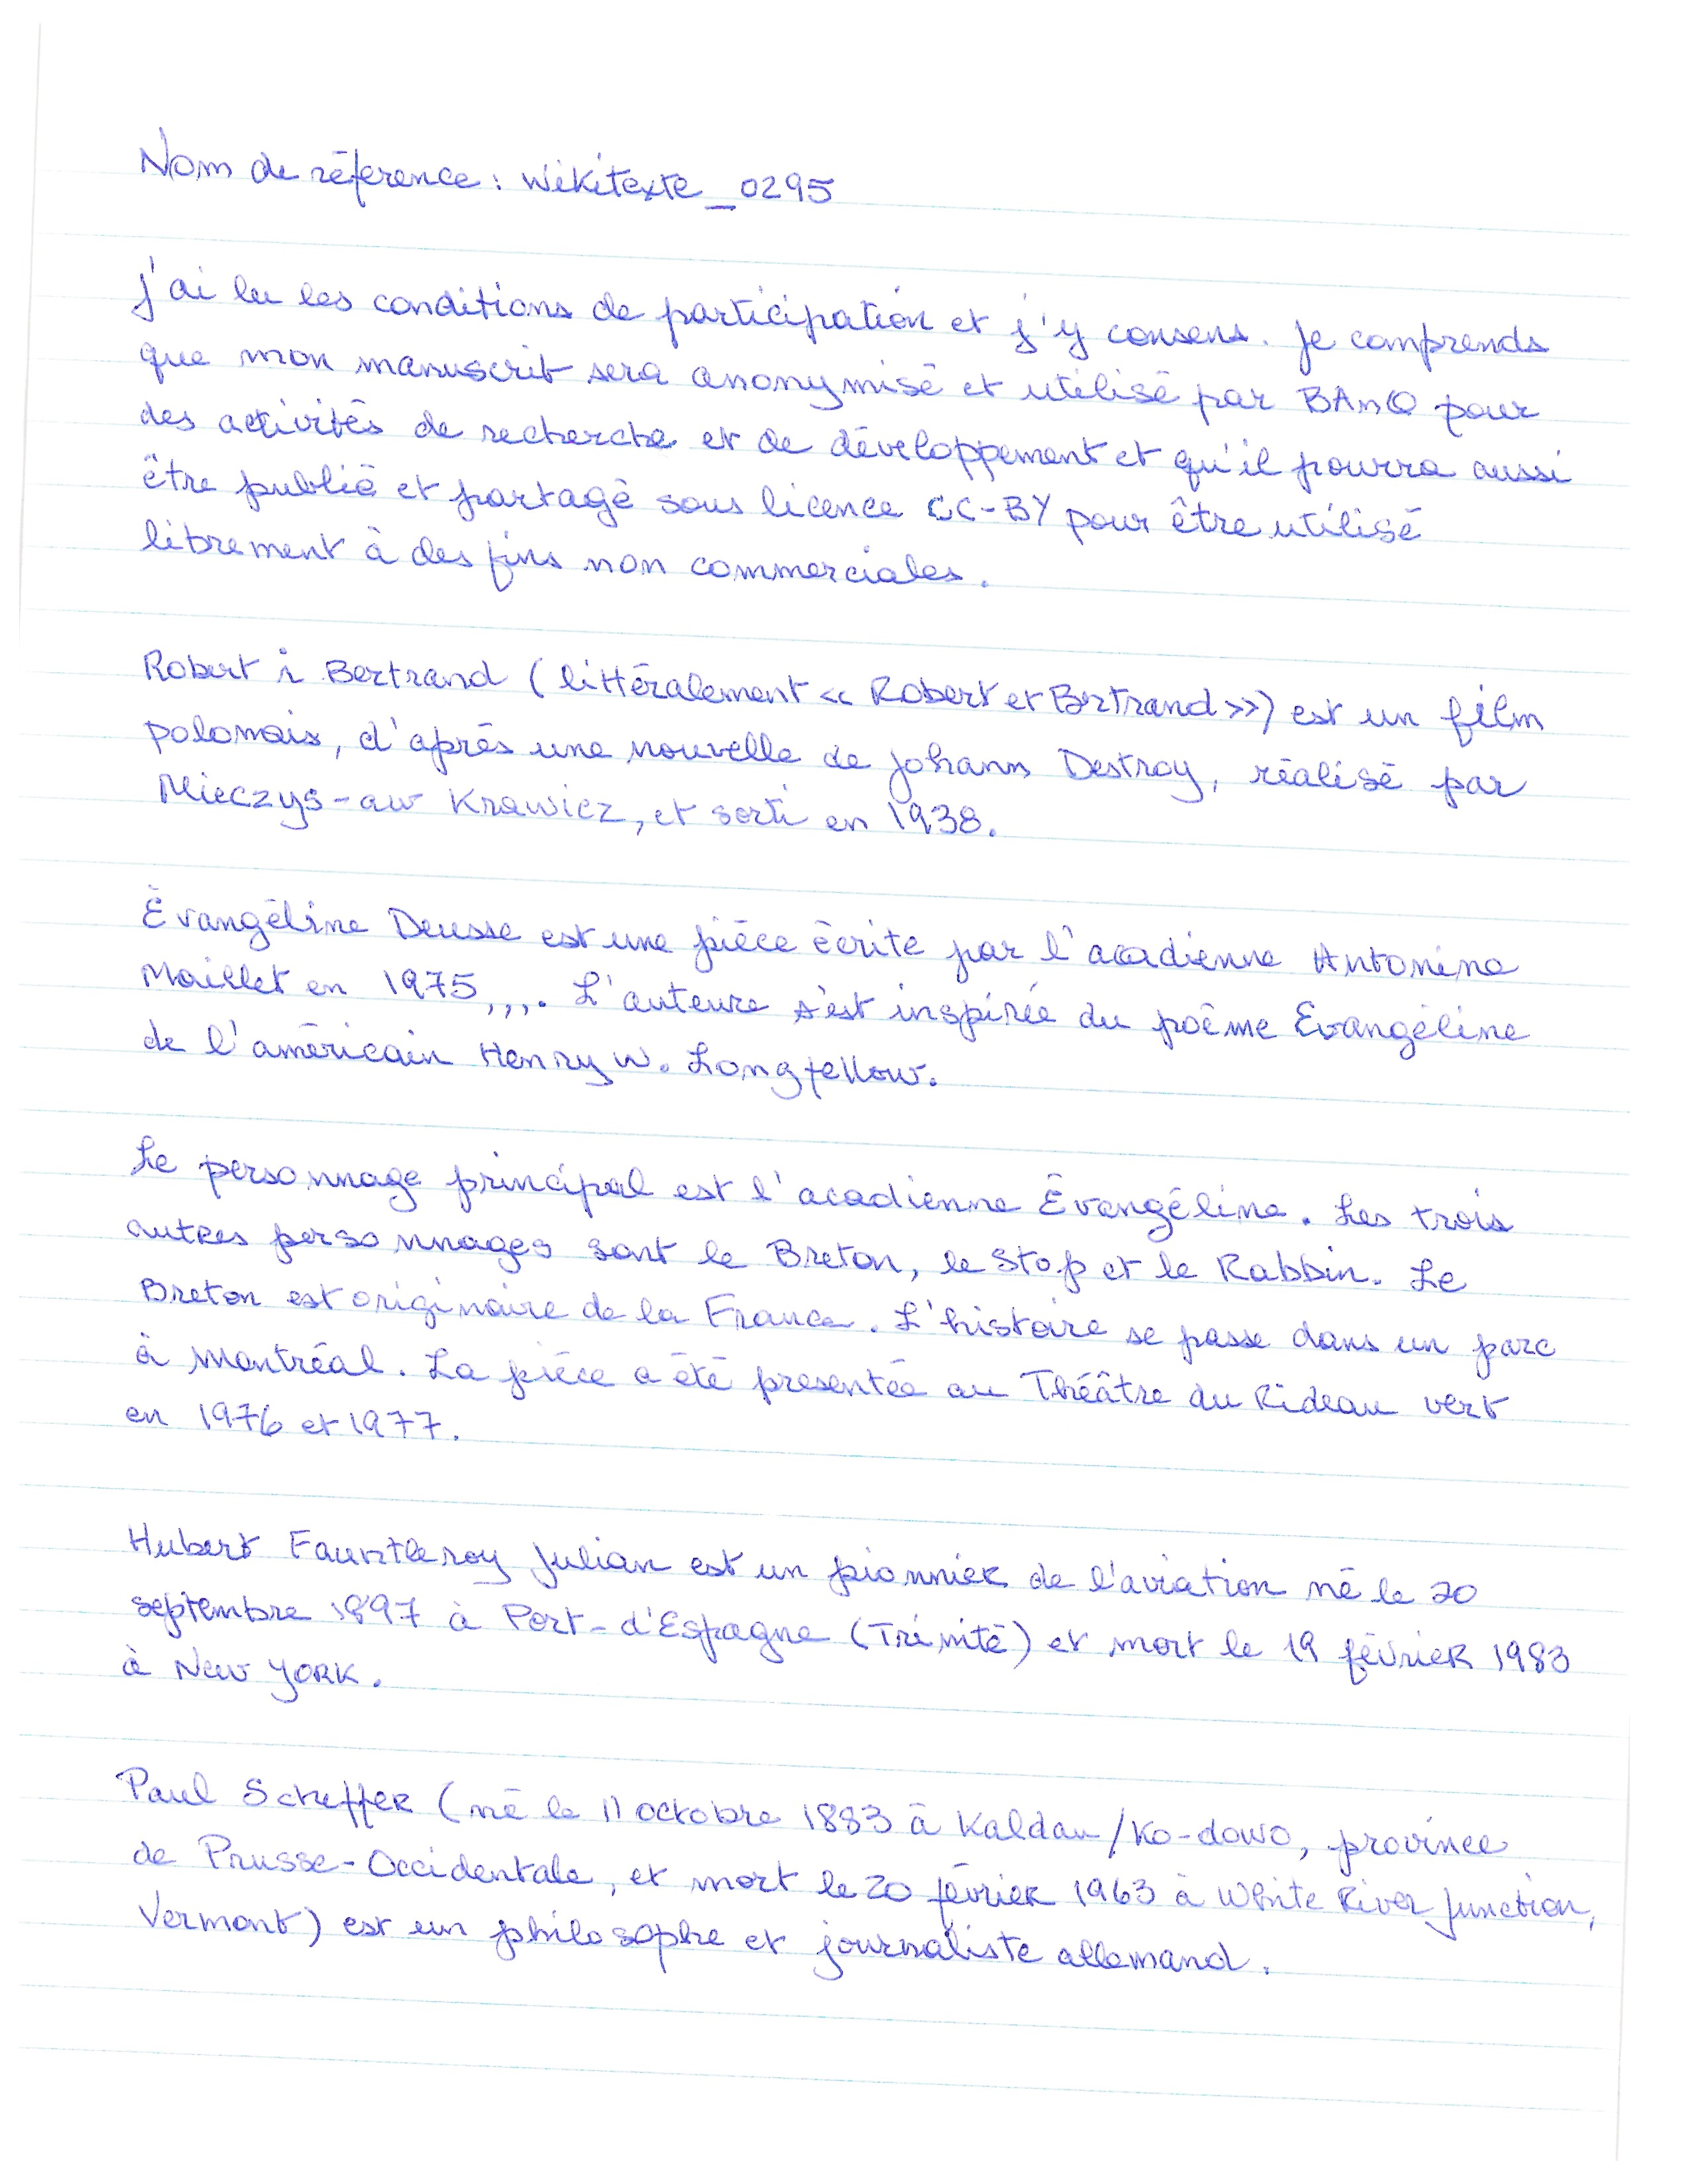 Nom de réference : Wikitexte_0295
J'ai lu les conditions de participation et j'y consens. Je comprends
que mon manuscrit sera anonymisé et utilisé par BAnQ pour
des activités de recherche et de développement et qu'il pourra aussi
être publié et partagé sous licence CC-BY pour être utilisé
librement à des fins non commerciales.
Robert i Bertrand (littéralement << Robert et Bertrand >>) est un film
polonais, d'après une nouvelle de Johann Destroy, réalisé par
Mieczys-aw Krawicz, et sorti en 1938.
Évangéline Deusse est une pièce écrite par l'acadienne Antonine
Maillet en 1975,,,. L'auteure s'est inspirée du poème Évangéline
de l'américain Henry W. Longfellow.
Le personnage principal est l'acadienne Évangéline. Les trois
autres personnages sont le Breton, le Stop et le Rabbin. Le
Breton est originaire de la France. L'histoire se passe dans un parc
à Montréal. La pièce a été présentée au Théâtre du Rideau vert
en 1976 et 1977.
Hubert Fauntleroy Julian est un pionnier de l'aviation né le 20
septembre 1897 à Port-d'Espagne (Trinité) et mort le 19 février 1983
à New York.
Paul Scheffer (né le 11 octobre 1883 à Kaldau/Ko-dowo, province
de Prusse-Occidentale, et mort le 20 février 1963 à White River Junction,
Vermont) est un philosophe et journaliste allemand.